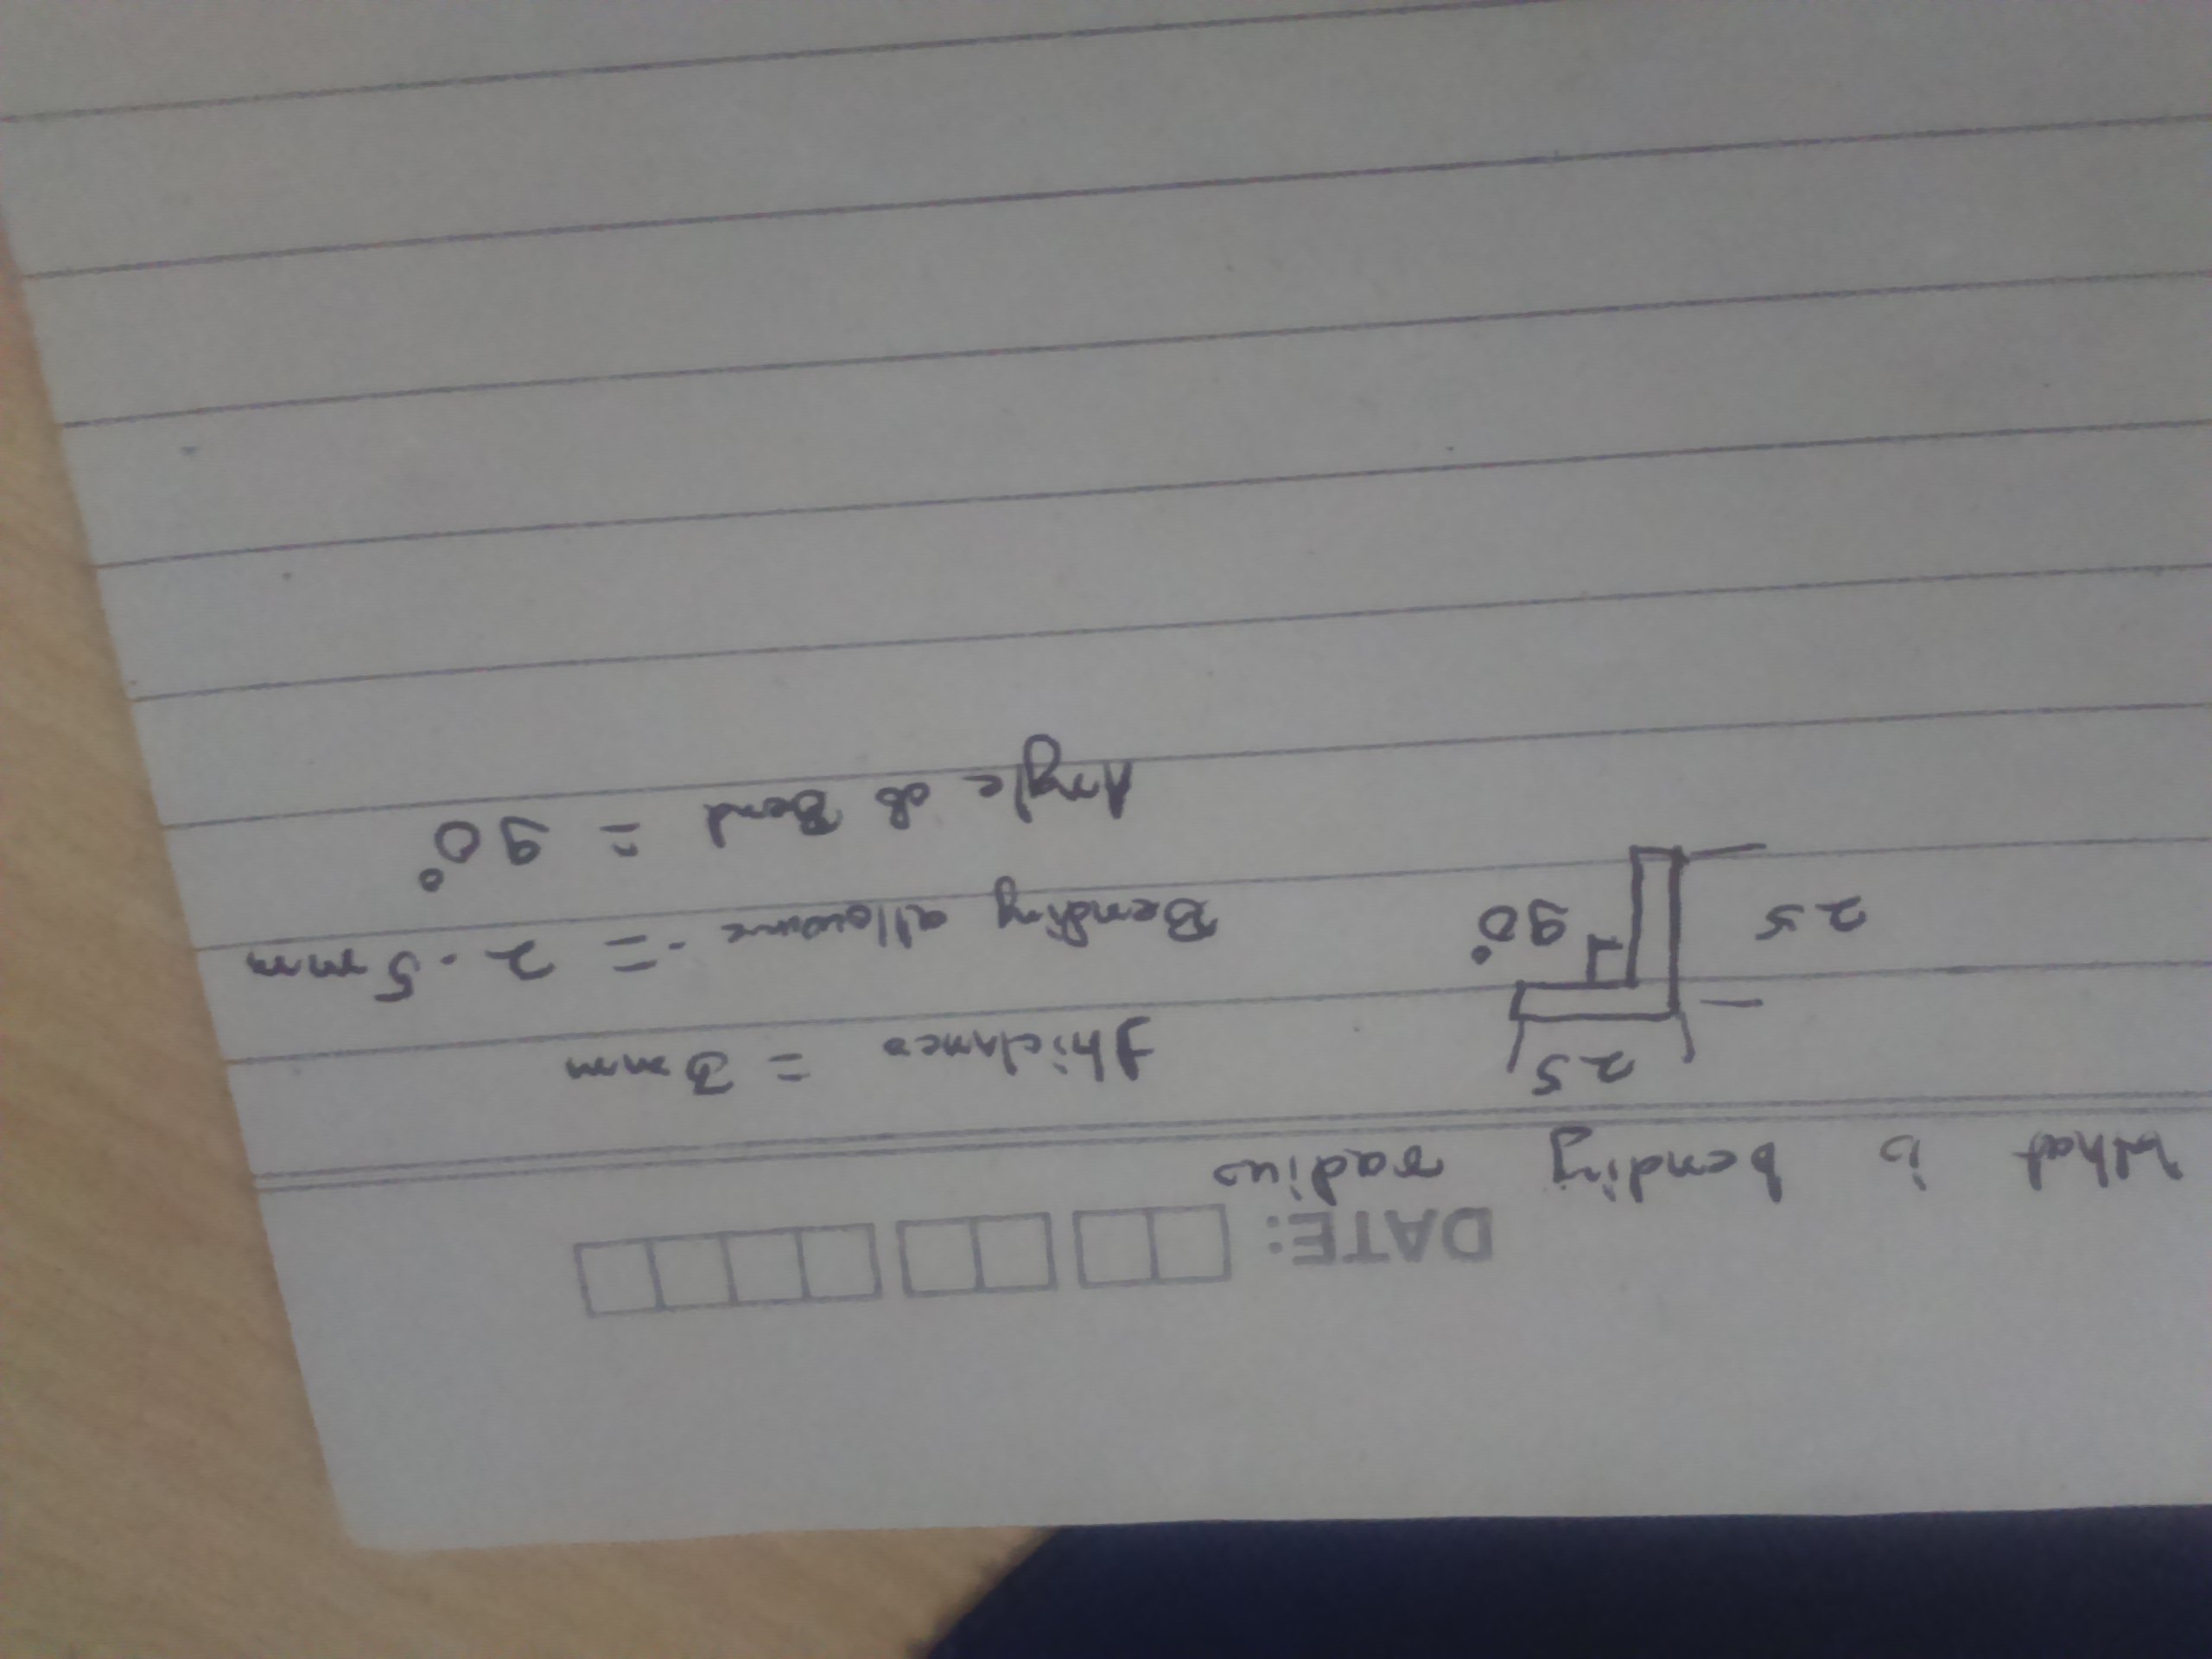 DATE:
What is bending radius
25
Thickness = 3mm
25
90°
Bending allowance = 2.5mm
Angle of Bend = 90°